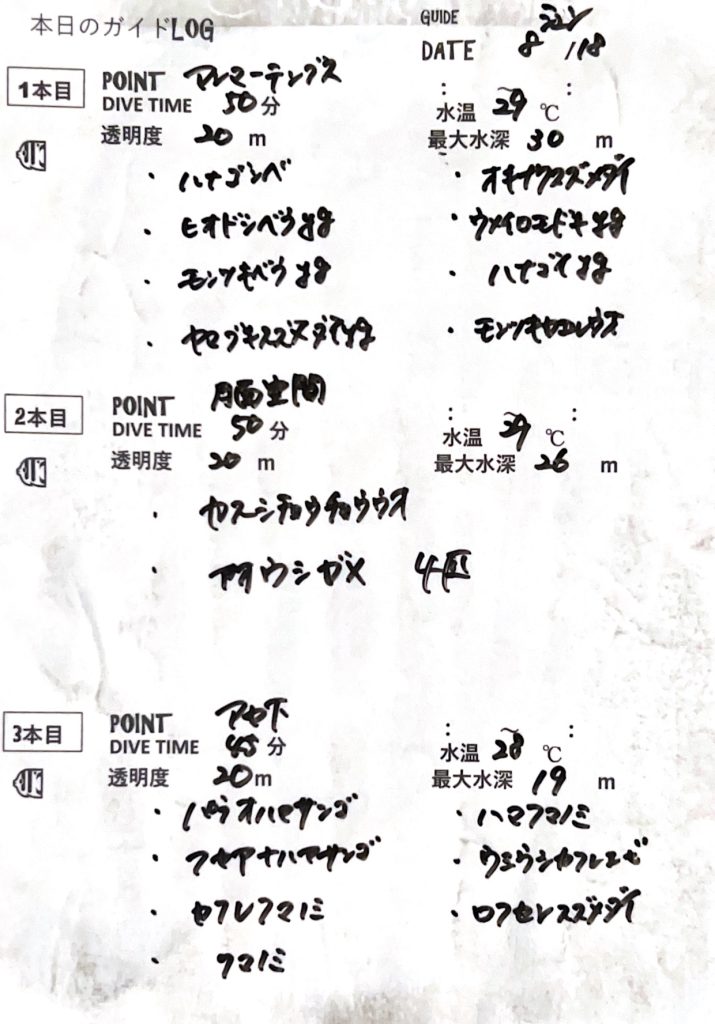 本日のガイドLOG
GUIDE
DATE 8 / 18
1本目
POINT
DIVE TIME 50 分
: ~ :
水温 29 ℃
透明度 20 m
最大水深 30 m
・ハナゴンベ
・ヒオドシベラyg
・ウメイロモドキyg
・モンツキベラyg
・ハナゴイyg
・ヤマブキスズメダイyg
・モンツキカエルウオ
2本目
POINT 月面空間
DIVE TIME 50 分
: ~ :
水温 29 ℃
透明度 20 m
最大水深 26 m
・カスミチョウチョウウオ
・アオウミガメ 4匹
3本目
POINT
DIVE TIME 45 分
: ~ :
水温 28 ℃
透明度 20 m
最大水深 19 m
・パラオハマサンゴ
・ハマクマノミ
・フカアナハマサンゴ
・ウミウシカクレエビ
・セジロクマノミ
・ロクセンスズメダイ
・クマノミ